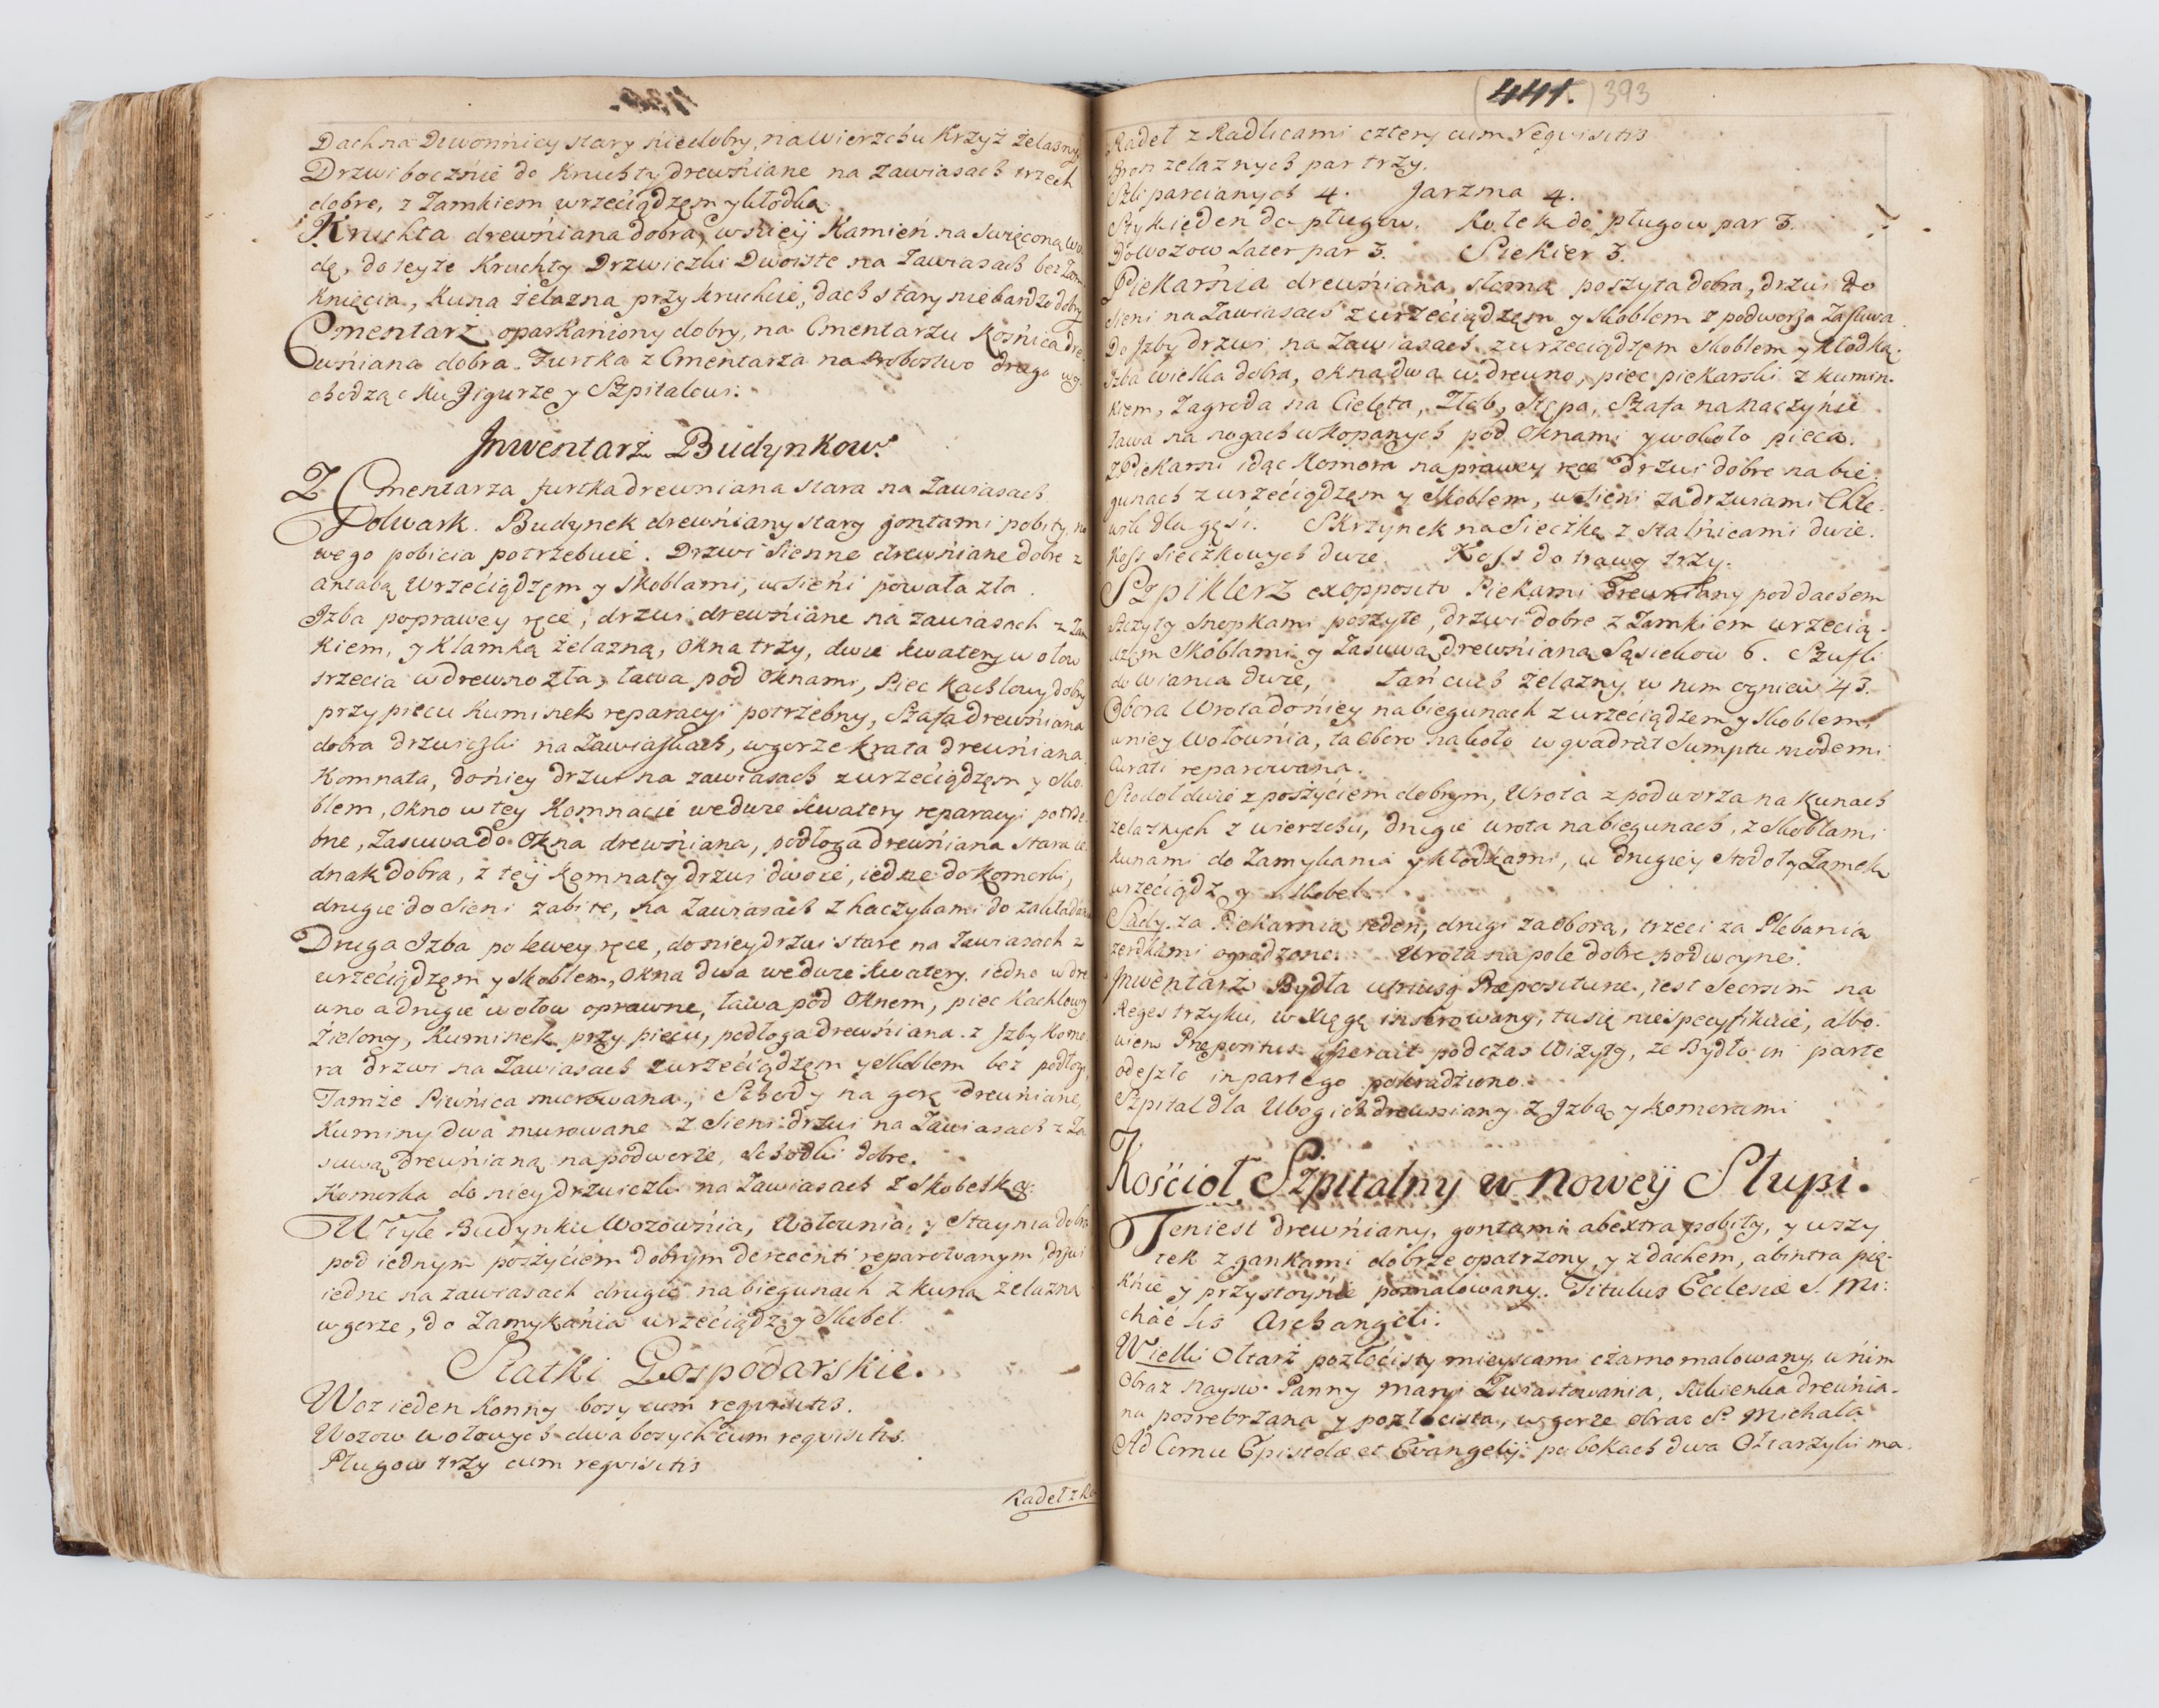 Dach na Dzwonnicy stary niedobry, na wierzchu Krzyż żelazny
Drzwi bocznie do Kruchty drewniane na zawiasach trzech
dobre, z Zamkiem wrzeciądzem y kłodką.
Kruchta drewniana dobra, w nieÿ Kamień na Swięconą wo
dę, do teyże Kruchty Drzwiczki Dwoiste na Zawiasach bez Zam
knięcia, Kuna żelazna przy kruchcie, dach stary nie bardzo dobry
Cmentarz oparkaniony dobry, na Cmentarzu Kośnica dre
wniana dobra. Furtka z Cmentarza na Probostwo druga wy
chodząc ku Figurze y Szpitalowi.
Inwentarż Budynkow.
Z Cmentarza furtka drewniana stara na Zawiasach.
Folwark. Budynek drewniany stary gontami pobity, no
wego pobicia potrzebuie. Drzwi Sienne drewniane dobre z
antabą Wrzeciądzem y Skoblami, w Sieni powała zła.
Izba po prawey ręce, drzwi drewniane na zawiasach z Zam
kiem, y Klamką żelazną, Okna trzy, dwie kwatery w ołow
trzecia w drewno zła, ława pod Oknami, Piec Kachlowy dobry
przy piecu Kuminek reparacyi potrzebny, Szafa drewniana
dobra drzwiczki na Zawiaskach, w gorze krata drewniana.
Komnata, do niey drzwi na zawiasach z wrzeciądzem y Sko
blem, Okno w tey Komnacie we dwie kwatery reparacyi potrze
bne, Zasuwa do Okna drewniana, podłoga drewniana stara ie
dnak dobra, z teÿ Komnaty drzwi dwoie, iedne do Komorki,
drugie do Sieni zabite, na Zawiasach z haczykami do zakładan
Druga Izba po lewey ręce, do niey drzwi stare na Zawiasach z
wrzeciądzem y Skoblem, Okna dwa we dwie kwatery iedno w dre
wno a drugie w ołow oprawne, ława pod Oknem, piec Kachlowy
Zielony, Kuminek przy piecu, podłoga drewniana. z Izby Komo
ra drzwi na Zawiasach z wrzeciądzem y Skoblem bez podłogi,
Tamże Piwnica murowana, Schody na gorę drewniane,
Kuminy dwa murowane z Sieni drzwi na Zawiasach z Za
suwą drewnianą na podworze, Schodki dobre.
Komorka do niey drzwiczki na Zawiasach z Skobelką.
W tyle Budynku Wozownia, Wołownia, y Staynia dobra
pod iednym poszyciem dobrym de recenti reparowanym, drzwi
iedne na zawiasach drugie na biegunach z kuną żelazną
w gorze, do Zamykania wrzeciądz y Skobel.
Statki Gospodarskie.
Woz ieden Konny bosy cum reqvisitis.
Wozow wołowych dwa bosych cum reqvisitis.
Plugow trzy cum reqvisitis
Radeł z Ra
441. (393)
Radeł z Radlicami cztery cum reqvisitis
Bron zelaznych par trzy.
Szli parcianych 4. Jarzma 4.
Styk ieden do pługow. Kołek do pługow par 3.
Do Wozow Later par 3. Siekier 3.
Piekarnia drewniana słomą poszyta dobra, drzwi do
Sieni na Zawiasach z wrzeciądzem y Skoblem z podworza Zasuwa
Do Izby drzwi na Zawiasach z wrzeciądzem Skoblem y kłodką.
Izba wielka dobra, okna dwa w drewno, piec piekarski z kumin-
kiem, Zagroda na Cielęta, Złob, Stępa, Szafa na naczynie
ława na nogach wkopanych pod Oknami y wokoło pieca.
Z Piekarni idąc Komora na prawey ręce drzwi dobre na bie
gunach z wrzeciądzem y Skoblem, w Sieni za drzwiami Chle-
wik dla gęsi. Skrzynek na Sieczkę z Stalnicami dwie.
Koss Sieczkowych dwie. Koss do trawy trzy.
Szpiklerz ex opposito Piekarni Drewniany pod dachem
szczyty Snopkami poszyte, drzwi dobre z Zamkiem wrzecią-
dzem Skoblami y Zasuwą drewnianą Sąsiekow 6. Szufli
do Wiania dwie, Łańcuch żelazny w nim ogniew 43.
Obora Wrota do niey na biegunach z wrzeciądzem y Skoblem,
w niey Wołownia, ta Oboro nakoło w qvadrat Sumptu moderni
Curati reparowana.
Stodoł dwie z poszyciem dobrym, Wrota z podworza na Kunach
zelaznych z wierzchu, drugie wrota na biegunach, z Skoblami
Kunami do Zamykania y kłodkami, w drugiey Stodoły Zamek
wrzeciądz y Skobel.
Sady za Piekarnią ieden, drugi za oborą, trzeci za Plebanią
żerdkami ogrodzone. Wrota na pole dobre podwoyne.
Inwentarż Bydła utriusq Præpositurae, iest Seorsim na
Regestrzyku, w Xięgę inserowany, tu się niespecyfikuie, albo-
wiem Præpositus Szerait podczas Wizyty, że Bydło in parte
odeszło in parte go pokradziono.
Szpital dla Ubogich drewniany z Izbą y komorami
Kościoł Szpitalny w Noweÿ Słupi.
Ten iest drewniany, gontami ab extra pobity, y wszy
tek z gankami dobrze opatrzony, y z dachem, ab intra pię-
knie y przystoynie pomalowany. Titulus Ecclesiæ S. Mi:
chaelis Archangeli.
Wielki Ołtarż pozłocisty mieyscami czarno malowany, w nim
Obraz Nayśw. Panny Maryi Zwiastowania, Sukienka drewnia-
na posrebrzana y pozłocista, w gorze obraz S. Michała
Ad Cornu Epistolæ et Evangelÿ po bokach dwa Ołtarzyki ma.